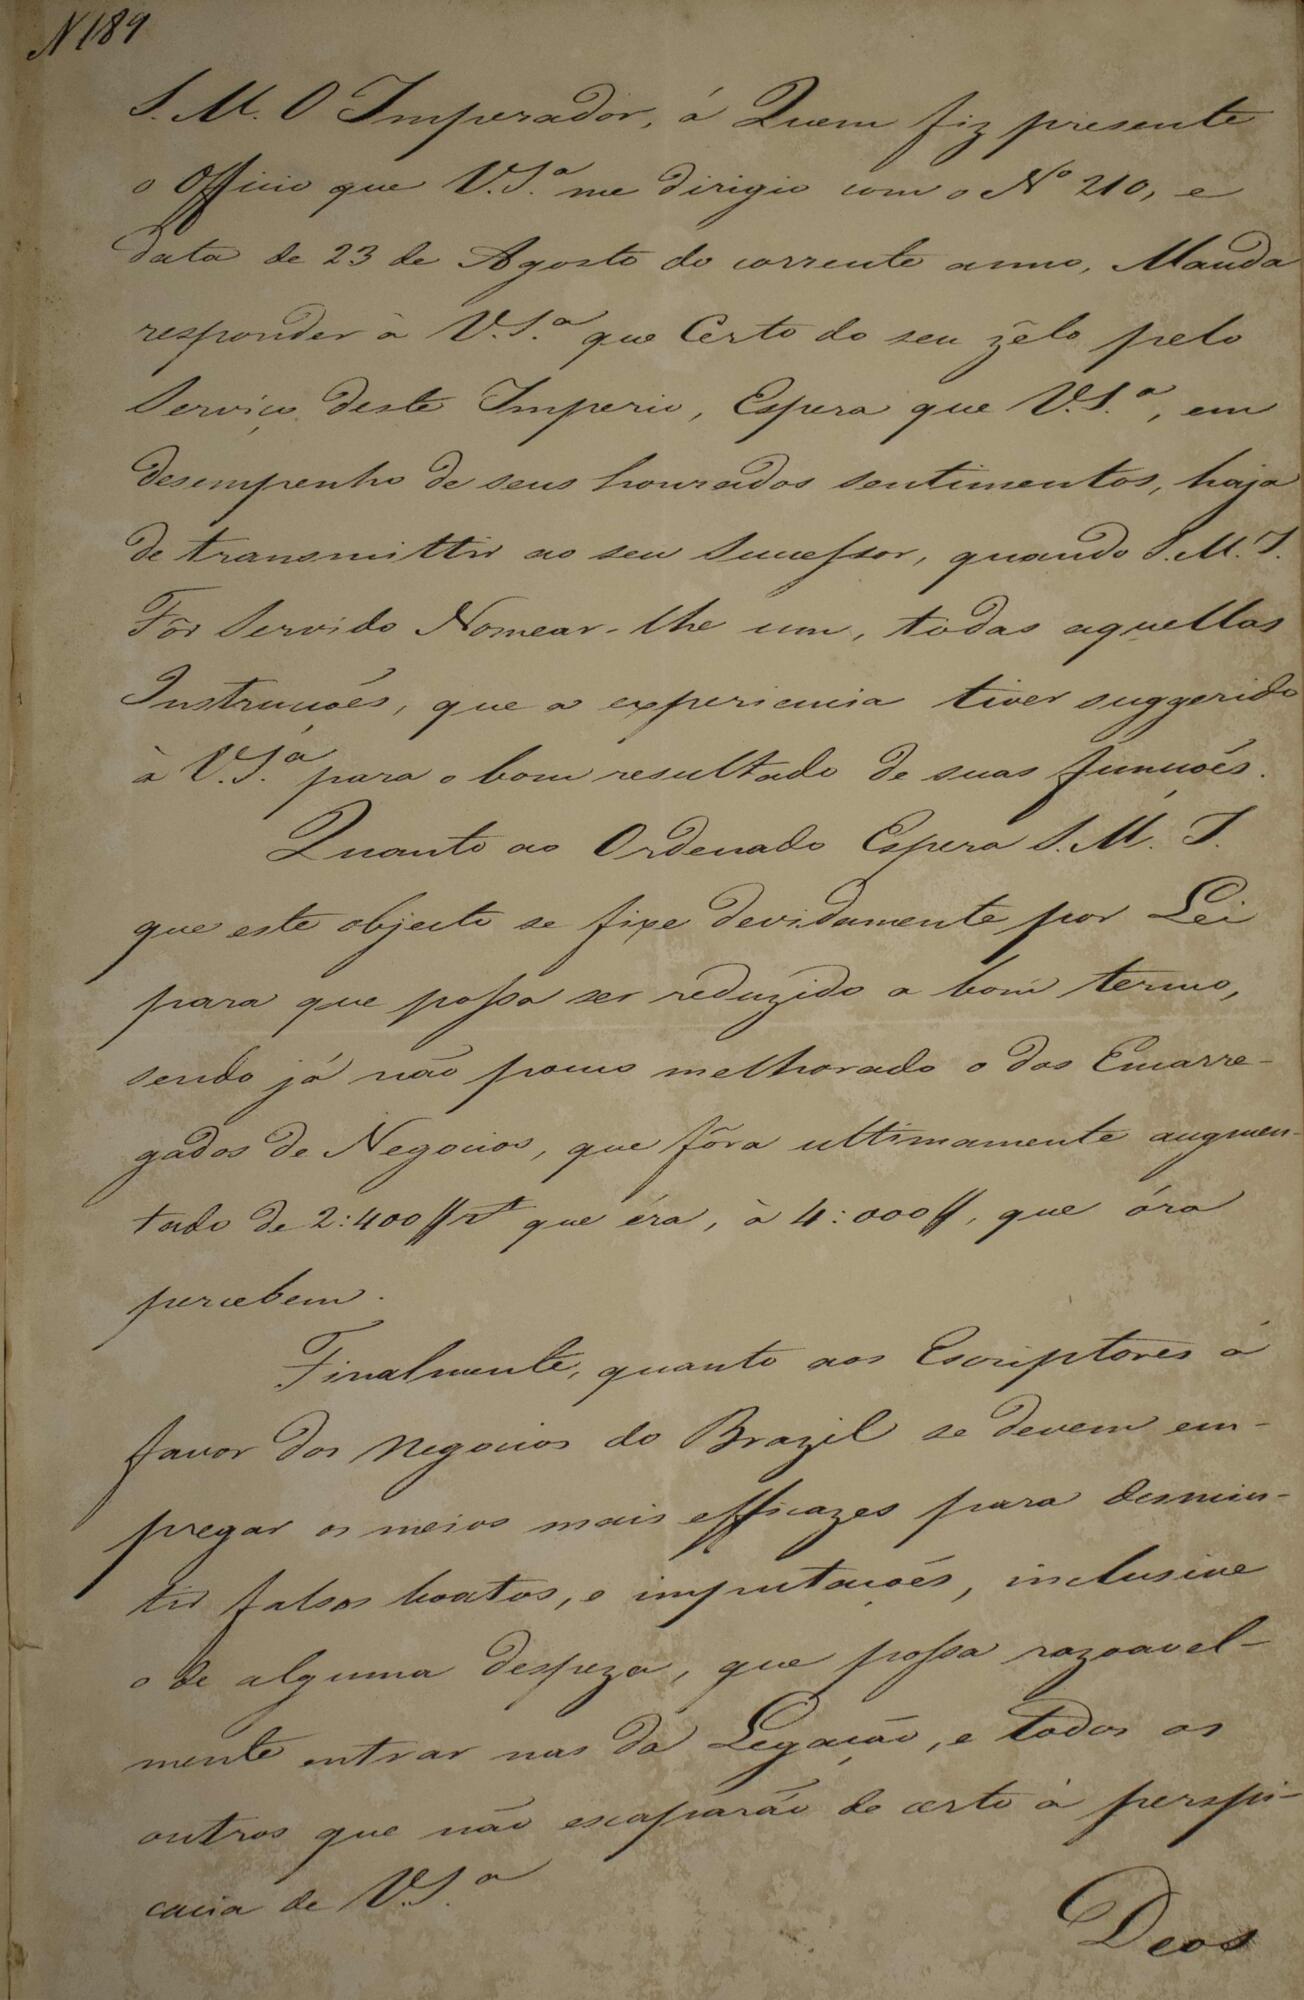 N 189
S. M. O Imperador, á Quem fiz presente
o Officio que V.S.ª me dirigio com o Nº 210, e
data de 23 de Agosto do corrente anno, Manda
responder à V.S.ª que Certo do seu zêlo pelo
Serviço deste Imperio, Espera que V.S.ª, em
desempenho de seus honrados sentimentos, haja
de transmittir ao seu Successor, quando S.M.I.
Fôr Servido Nomear-lhe um, todas aquellas
Instrucções, que a experiencia tiver suggerido
à V.S.ª para o bom resultado de suas funcções.
Quanto ao Ordenado Espera S. M. I.
que este objecto se fixe devidamente por Lei
para que possa ser reduzido a bom termo,
sendo já não pouco melhorado o dos Encarre-
gados de Negocios, que fôra ultimamente augmen-
tado de 2:400$ rs que éra, à 4:000$, que óra
percebem.
Finalmente, quanto aos Escriptores á
favor dos negocios do Brazil se devem em-
pregar os meios mais efficazes para desmen-
tir falsos boatos, e imputações, inclusive
o de alguma despeza, que possa razoavel-
mente entrar nas da Legação, e todos os
outros que não escaparão de certo á perspi-
cacia de V.S.ª
Deos